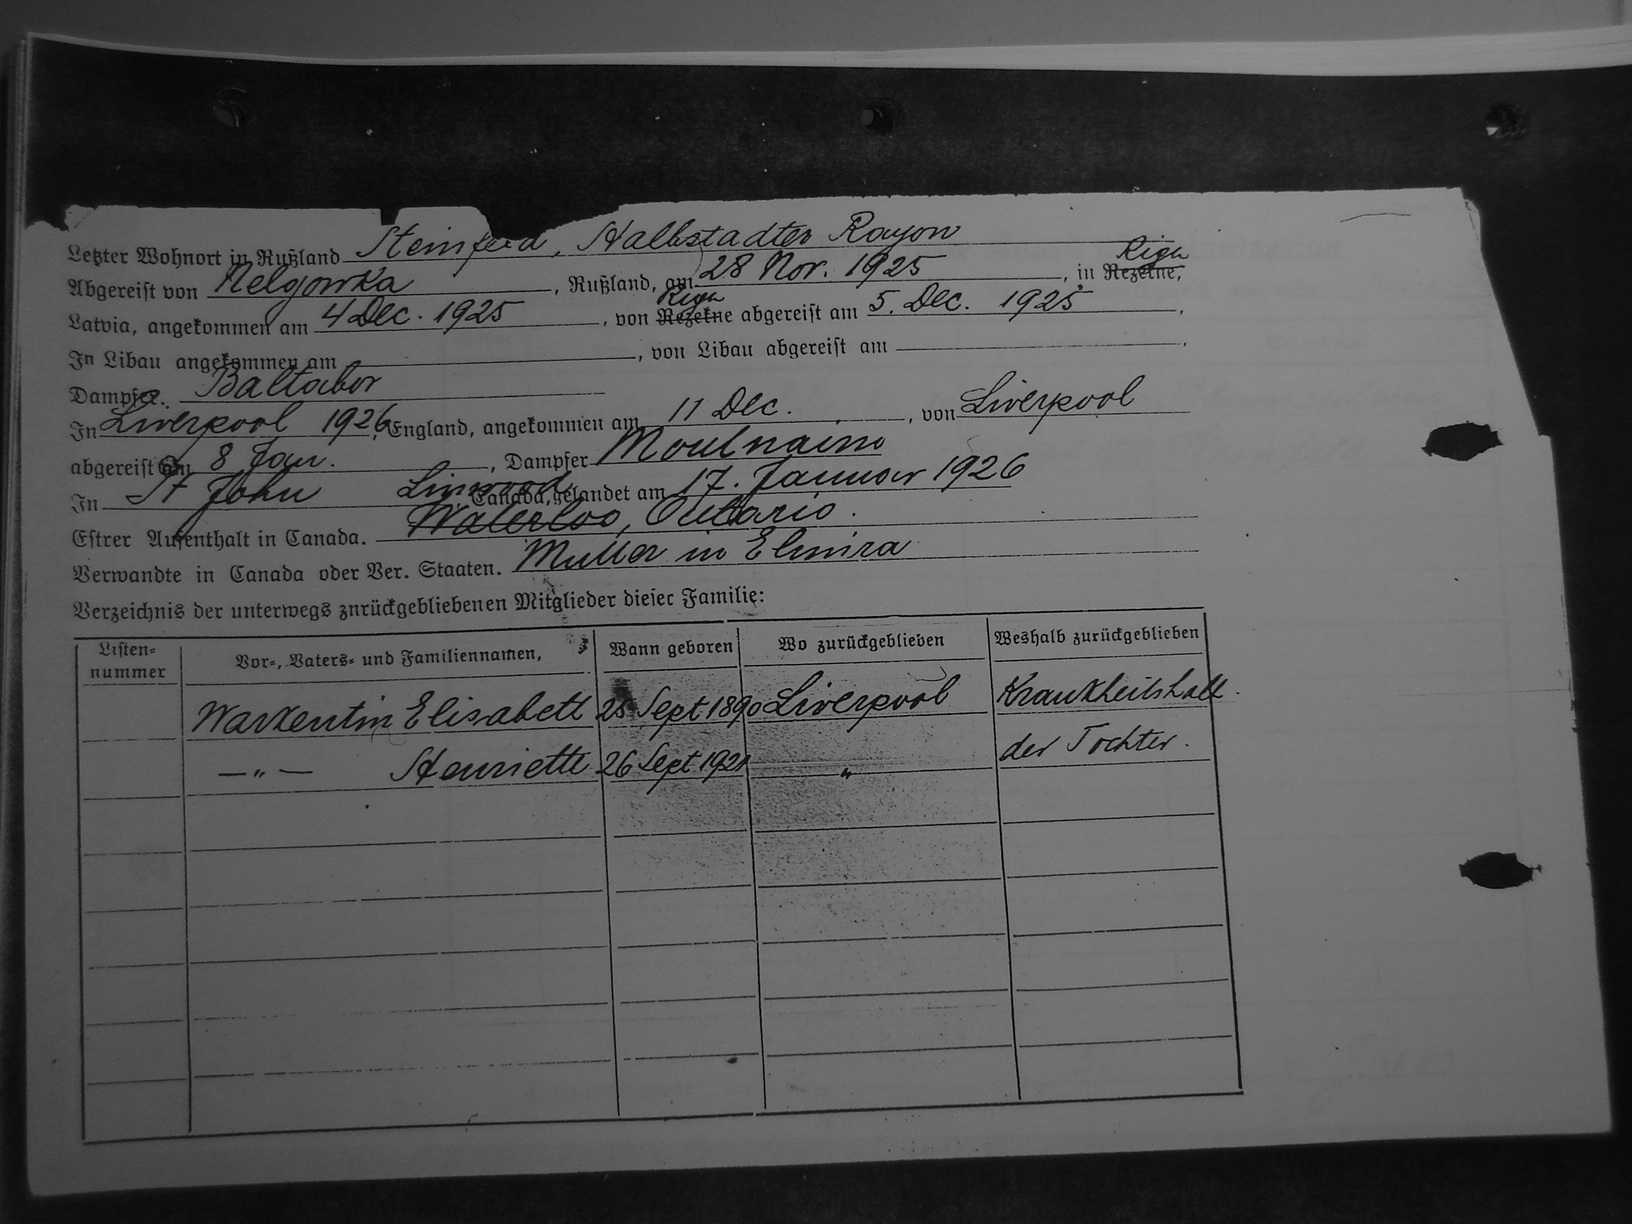 Letzter Wohnort in Rußland Steinfeld, Halbstadter Rayon
Riga
Abgereist von Nelgowka, Rußland, am 28 Nov. 1925, in Rezekne,
Riga
Latvia, angekommen am 4 Dec. 1925, von Rezekne abgereist am 5. Dec. 1925.
In Libau angekommen am, von Libau abgereist am.
Dampfer. Baltabor
In Liverpool 1926, England, angekommen am 11 Dec., von Liverpool
abgereist am 8 Jan., Dampfer
In St John Canada, gelandet am 17. Januar 1926
Linwood
Estrer Aufenthalt in Canada. Waterloo, Ontario.
Verwandte in Canada oder Ver. Staaten. Mutter in Elmira
Verzeichnis der unterwegs znrückgebliebenen Mitglieder dieser Familie:
Listen-nummer Vor-, Vaters- und Familiennamen, Wann geboren Wo zurückgeblieben Weshalb zurückgeblieben
Warkentin Elisabeth 25 Sept 1890 Liverpool Krankheitshalb.
—"— Henriette 26 Sept 1921 " der Tochter.